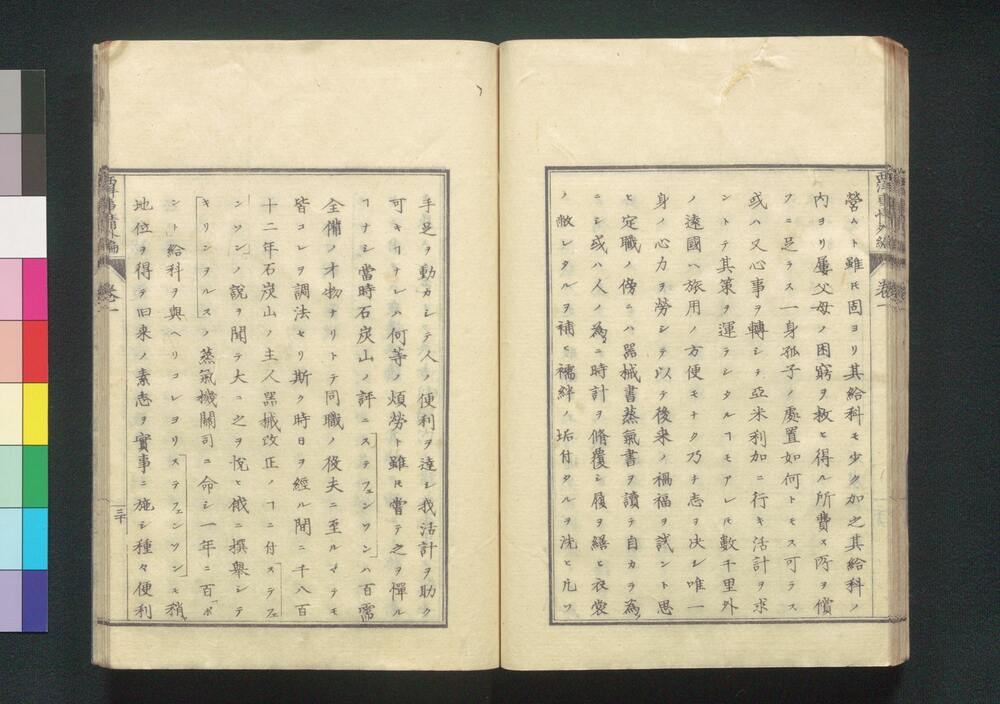 營ムト雖𪜈固ヨリ其給料モ少ク加之其給料ノ
内ヨリ屢父母ノ困窮ヲ救ヒ得ル所費ス所ヲ償
フニ足ラス一身孤子ノ處置如何トモス可ラス
或ハ又心事ヲ轉シテ亞米利加ニ行キ活計ヲ求
ントテ其策ヲ運ラシタルヿモアレ𪜈數千里外
ノ遠國ヘ旅用ノ方便モナク乃チ志ヲ决シ唯一
身ノ心力ヲ勞シテ以テ後來ノ禍福ヲ試ント思
ヒ定職ノ傍ニハ器械書蒸氣書ヲ讀テ自カラ爲
ニシ或ハ人ノ爲ニ時計ヲ脩覆シ履ヲ繕ヒ衣裳
ノ敝レタルヲ補ヒ襦絆ノ垢付タルヲ洗ヒ凡ソ
手足ヲ動カシテ人ノ便利ヲ達シ我活計ヲ助ク
可キヿナレハ何等ノ煩勞ト雖𪜈嘗テ之ヲ憚ル
ヿナシ當時石炭山ノ評ニステフェンソンハ百需
全備ノ才物ナリトテ同職ノ役夫ニ至ルマテモ
皆コレヲ調法セリ斯ク時日ヲ經ル間ニ千八百
十二年石炭山ノ主人器械改正ノヿニ付ステフェ
ンソンノ說ヲ聞テ大ニ之ヲ悅ヒ俄ニ撰擧シテ
キリンヲルスノ蒸氣機關司ニ命シ一年ニ百ポ
ント給料ヲ與ヘリコレヨリステフェンソンモ稍
地位ヲ得テ旧来ノ素志ヲ實事ニ施シ種々便利
西洋事情外編
卷一
三十